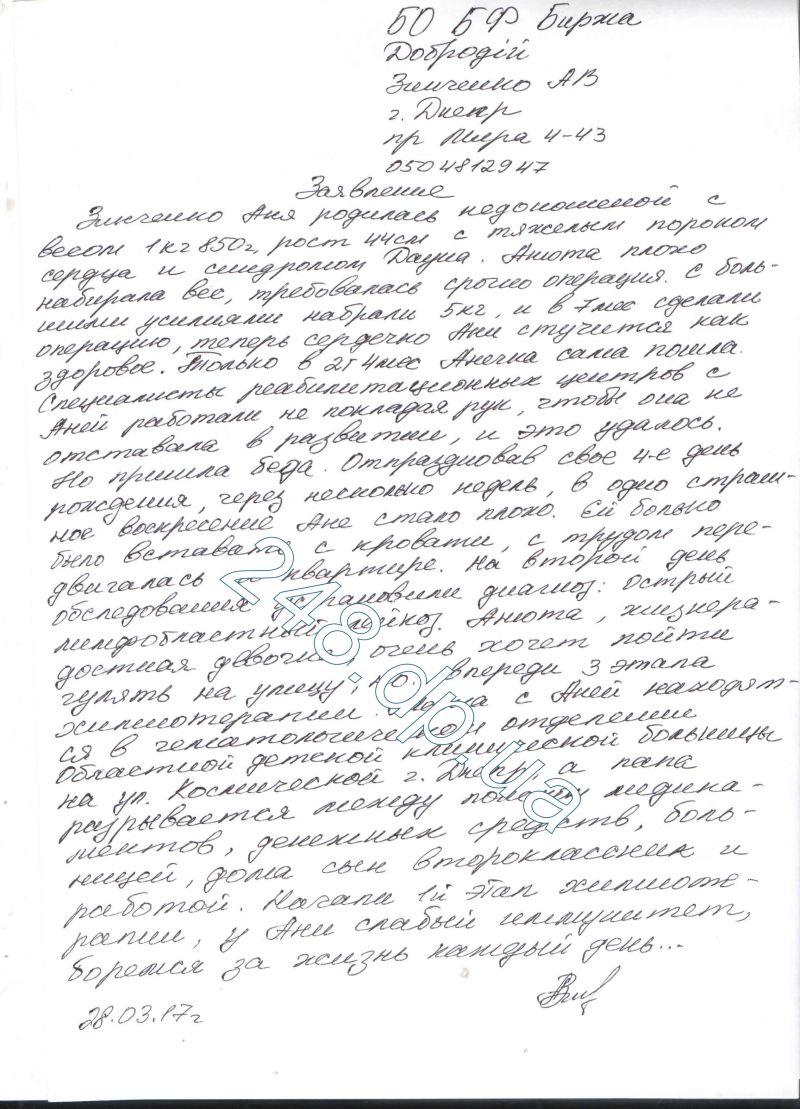 БО БФ Биржа
Добродій
Зинченко АВ
г. Днепр
пр Мира 4-43
0504812947
Заявление
Зинченко Аня родилась недоношеной с
весом 1кг 850г, рост 44см с тяжелым пороком
сердца и синдромом Дауна. Анюта плохо
набирала вес, требовалась срочно операция. С боль-
шими усилиями набрали 5кг, и в 7мес сделали
операцию, теперь сердечко Ани стучится как
здоровое. Только в 2г 4мес Анечка сама пошла.
Специалисты реабилитационных центров с
Аней работали не покладая рук, чтобы она не
отставала в развитии, и это удалось.
Но пришла беда. Отпраздновав свое 4-е день
рождения, через несколько недель, в одно страш-
ное воскресение Ане стало плохо. Ей больно
было вставать с кровати, с трудом пере-
двигалась в квартире. На второй день
обследования установили диагноз: острый
лимфобластный лейкоз. Анюта, жизнера-
достная девочка, очень хочет пойти
гулять на улицу, но впереди 3 этапа
химиотерапии. Мама с Аней находят-
ся в гематологическом отделении
Областной детской клинической больницы
на ул. Космической г. Днепр, а папа
разрывается между поиском медика-
ментов, денежных средств, боль-
ницей, дома сын второклассник и
работой. Начали 1й этап химиоте-
рапии, у Ани слабый иммунитет,
боремся за жизнь каждый день...
28.03.17г
248.dp.ua